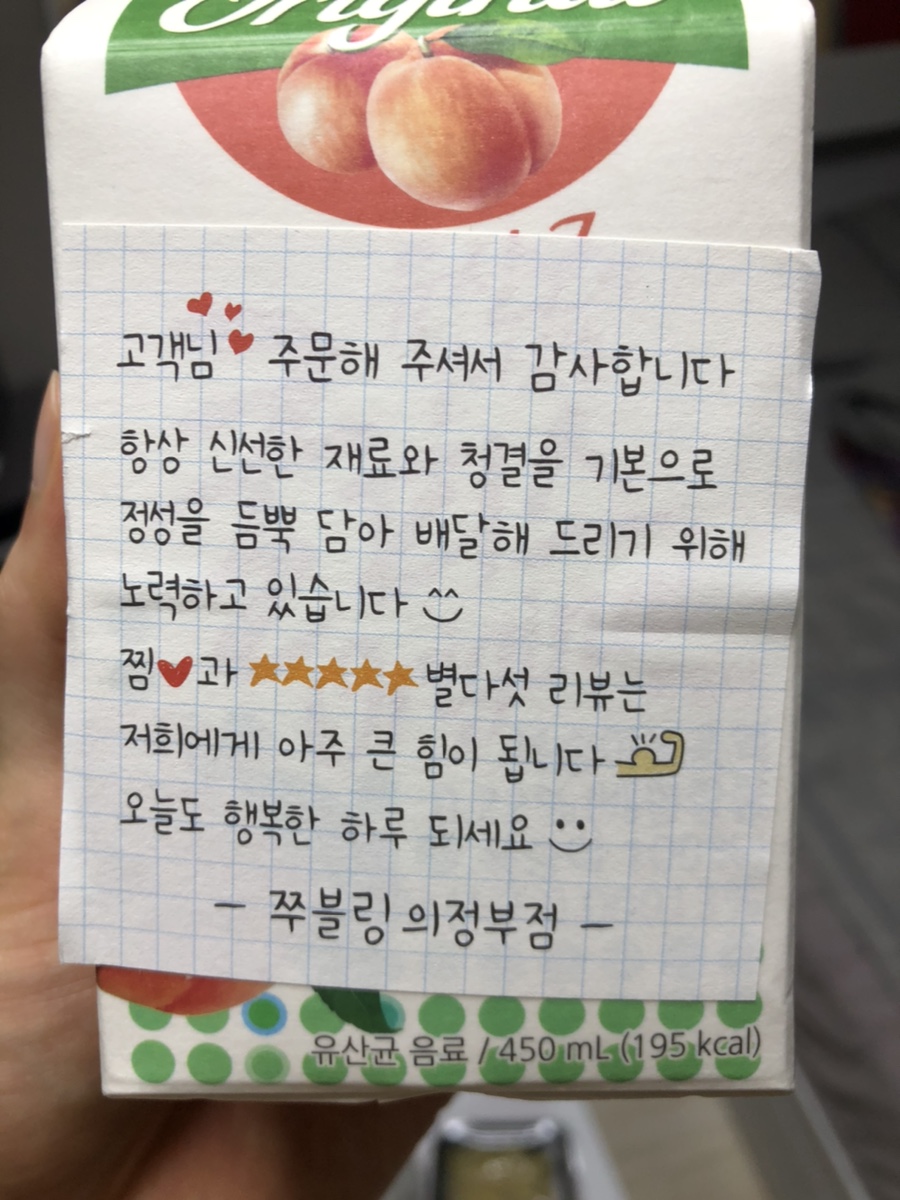 Original
고객님 주문해 주셔서 감사합니다
항상 신선한 재료와 청결을 기본으로
정성을 듬뿍 담아 배달해 드리기 위해
노력하고 있습니다
찜과 별다섯 리뷰는
저희에게 아주 큰 힘이 됩니다
오늘도 행복한 하루 되세요
- 쭈블링 의정부점 -
유산균 음료 / 450 mL (195 kcal)